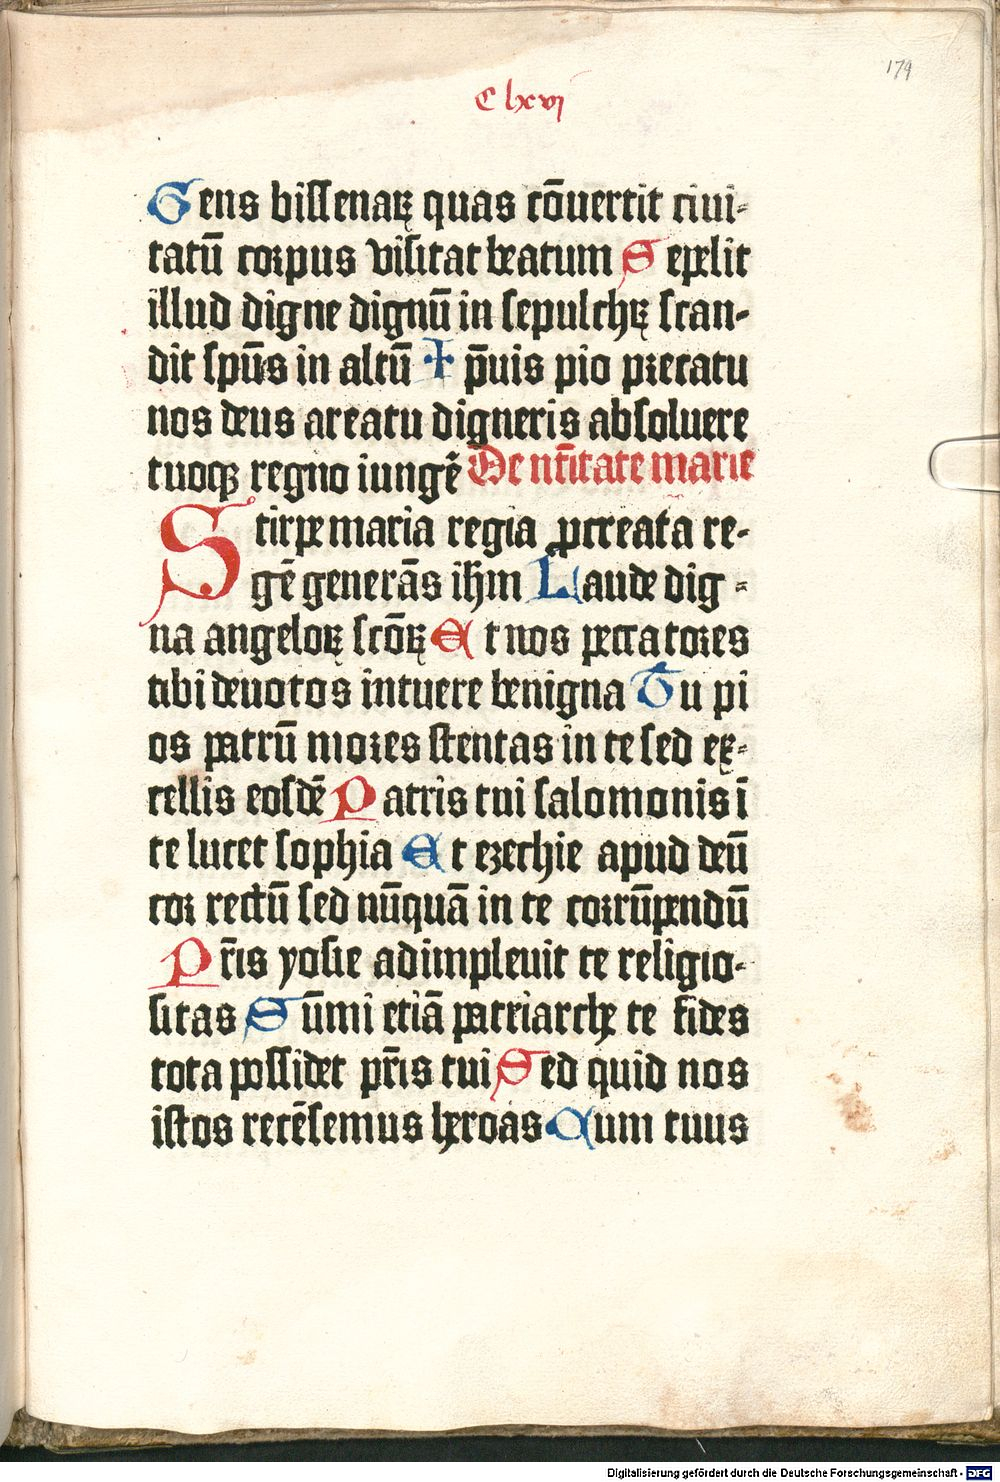 179
C lxvi
Gens bissenaꝝ quas cōuertit ciui-
tatū corpus visitat beatum Sepelit
illud digne dignū in sepulchꝝ scan-
dit sp̄us in altū I p̄uis pio precatu
nos deus a reatu digneris absoluere
tuoqꝫ regno iungē De nr̄itate marie
Stirpe maria regia ꝓcreata re-
gē generās ih̄m Laude dig-
na angeloꝝ scōꝝ Et nos peccatores
tibi deuotos intuere benigna Tu pi
os patrū mores ostentas in te sed ex-
cellis eosdē Patris tui salomonis ī
te lucet sophia Et ezechie apud deū
cor rectū sed nūquā in te corrūpendū
Pr̄is yosie adimpleuit te religio-
sitas Sūmi etiā patriarche te fides
tota possidet pr̄is tui Sed quid nos
istos recēsemus heroas Qum tuus
Digitalisierung gefördert durch die Deutsche Forschungsgemeinschaft - DFG